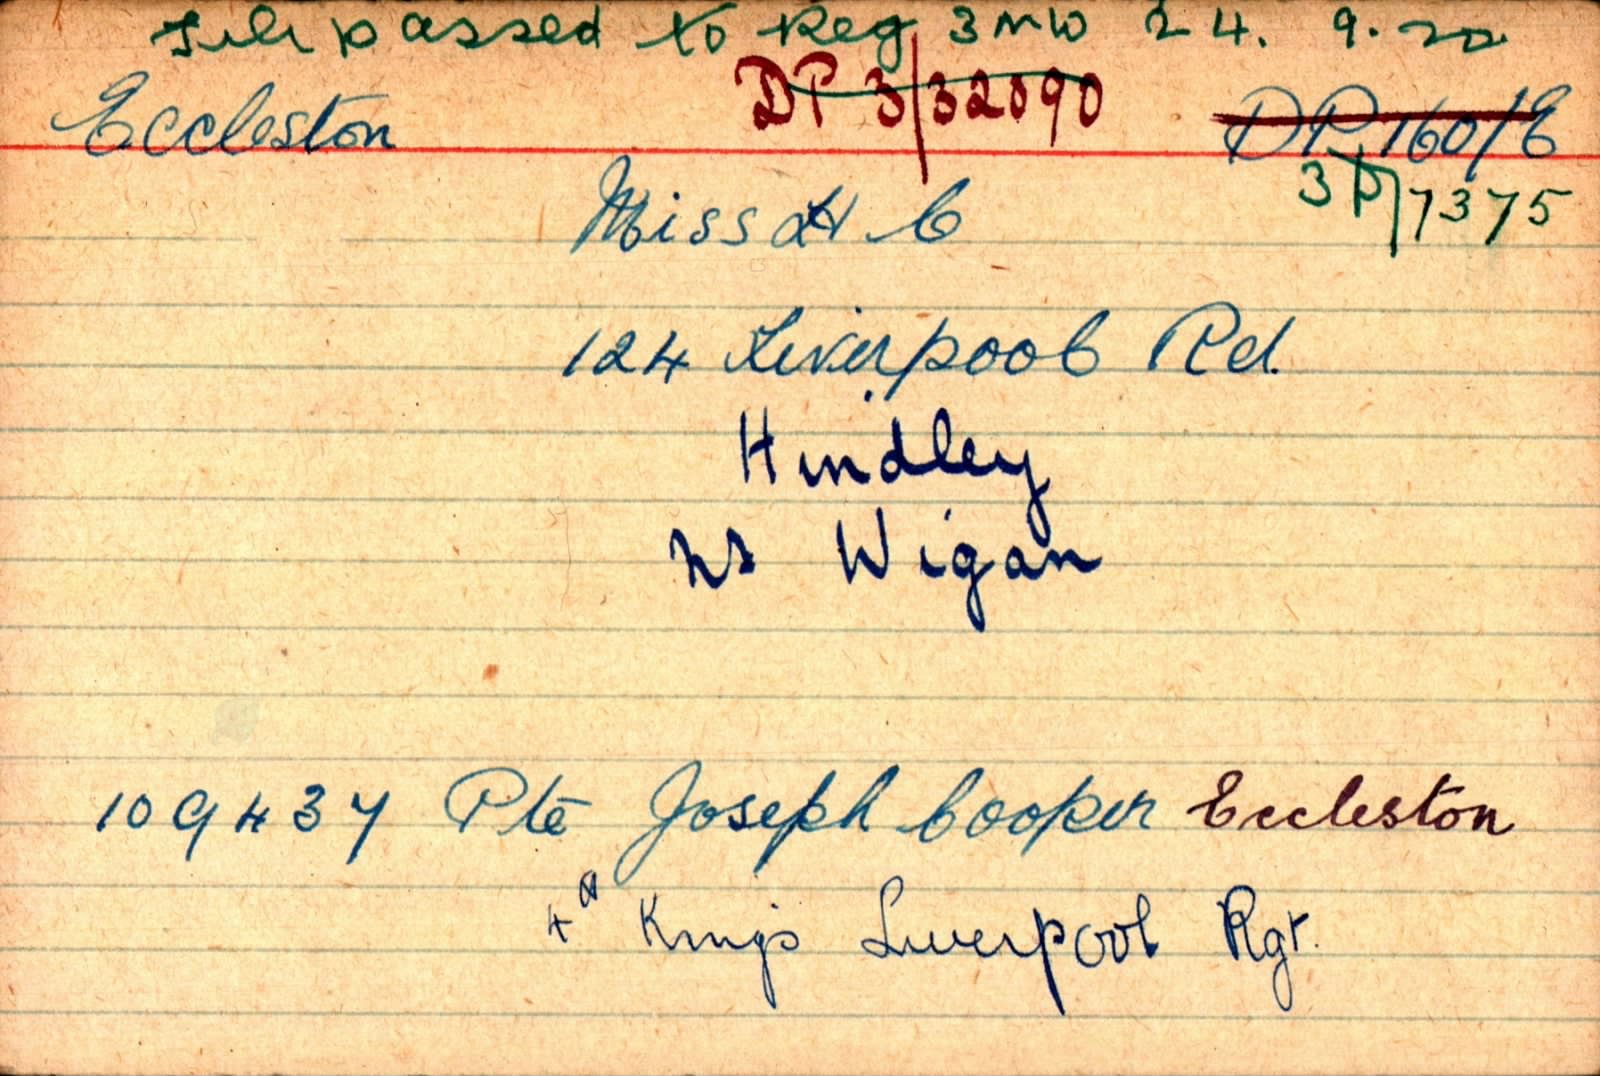 File passed to Reg 3 NW 24. 9. 20
Eccleston DP 3/32090 DP 160/E
3 D/7375
Miss H C
124 Liverpool Rd.
Hindley
Nr Wigan
109437 Pte Joseph Cooper Eccleston
4th Kings Liverpool Rgt.